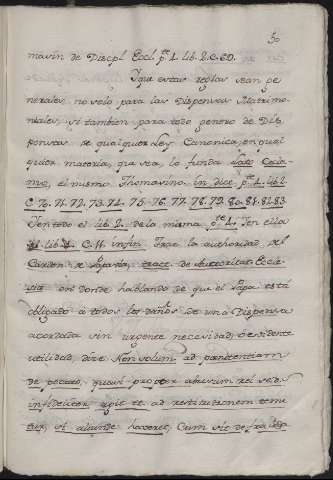 50
masin de Discipl Eccl. pe. 1. lib. 2. C. 60.
Y que estas reglas sean ge
nerales no solo para las Dispensas Matrimo
niales, si tambien para todo genero de Dis
pensas de qualquier Ley Canonica, en qual
quier materia, que sea, lo funda
el mismo Thomasino in dice. pe. 1. lib. 2
C. 70. 71. 72. 73. 74. 75. 76. 77. 78. 79. 80. 81. 82. 83
Y en todo el lib. 2. de la misma pte. 1. Y en ella
lib. C. 11. in fin. Trae la authoridad del
Carden. de Eccle
sia en donde hablando de que el Papa està
obligado a todos los daños de una Dispensa
acordada sin urgente necesidad, ò evidente
utilidad, dice Non solum ad penitentiam
de peccato, quasi propter abusum rei se des
infideliter egit et ad restitutionem tene
tur, si aliunde haberet, Cum sic